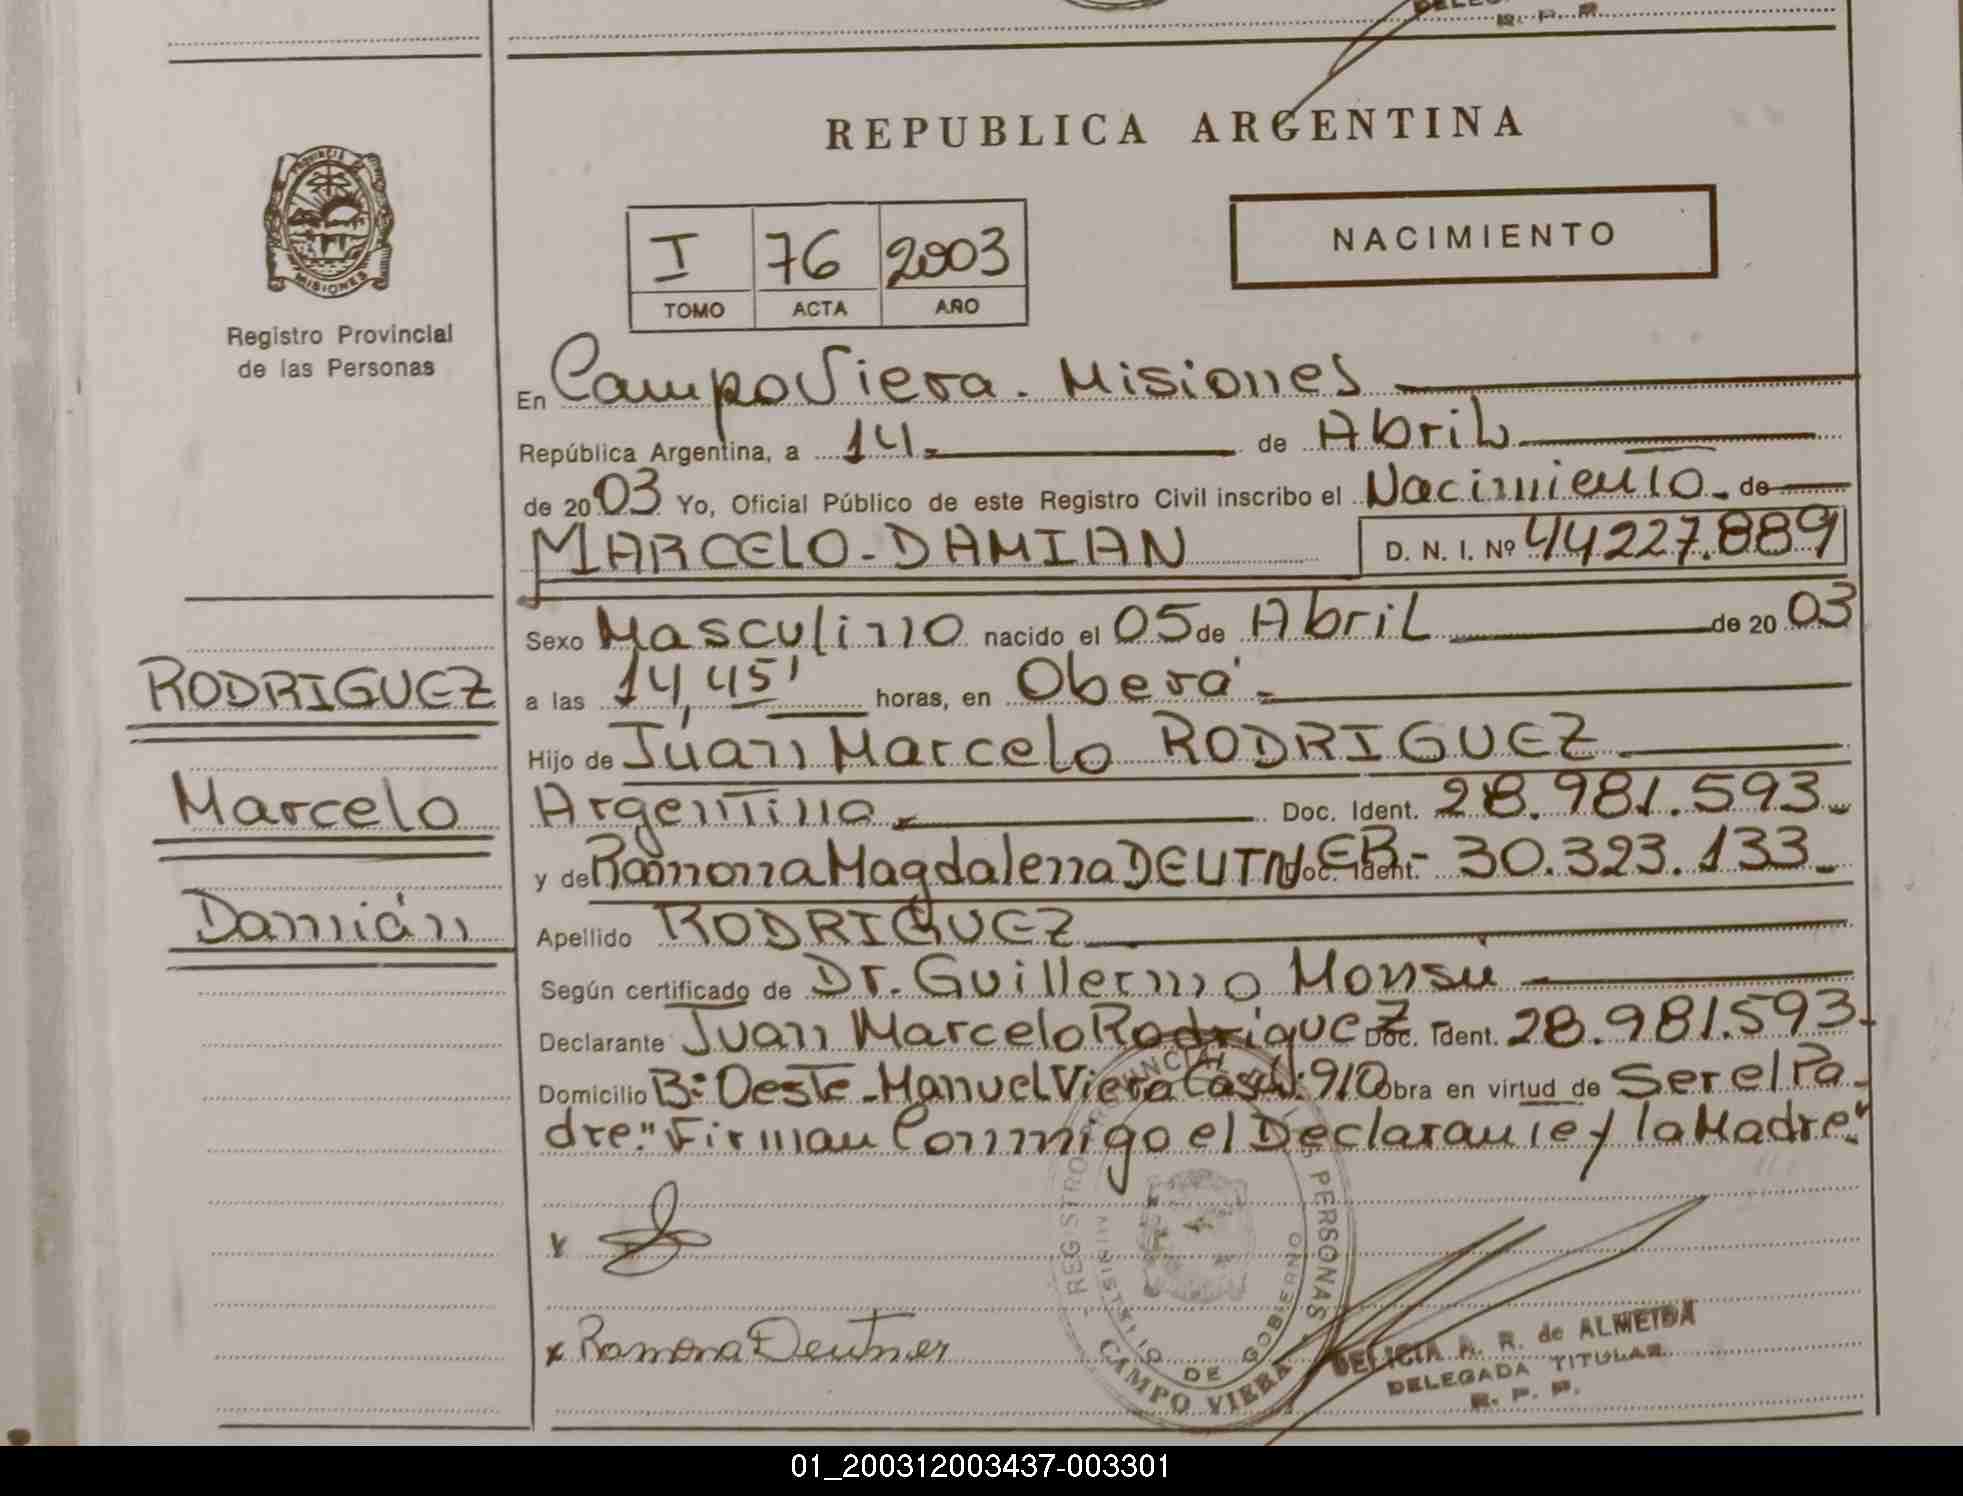 DELEG
R. P. P.
REPUBLICA ARGENTINA
PROVINCIA DE
MISIONES
Registro Provincial
de las Personas
I 76 2003
TOMO ACTA AÑO
NACIMIENTO
En Campo Viera. Misiones
República Argentina, a 14. de Abril
de 2003 Yo, Oficial Público de este Registro Civil inscribo el Nacimiento. de
MARCELO-DAMIAN D. N. I. Nº 44227.889
Sexo Masculino nacido el 05 de Abril de 20 03
RODRIGUEZ
a las 14,45' horas, en Oberá.
Hijo de Juan Marcelo RODRIGUEZ
Marcelo
Argentino. Doc. Ident. 28.981.593.
y de Ramona Magdalena DEUTNER.- Doc. Ident. 30.323.133.
Damián
Apellido RODRIGUEZ
Según certificado de Dr. Guillermo Monsú
Declarante Juan Marcelo Rodriguez Doc. Ident. 28.981.593.
Domicilio Bº: Oeste-Manuel Viera Casa N: 910 Obra en virtud de Ser el Pa-
dre." Firman Conmigo el Declarante y la Madre."
REGISTRO PROVINCIAL DE LAS PERSONAS
MINISTERIO DE GOBIERNO
CAMPO VIERA
x Ramona Deutner
DELICIA A. R. de ALMEIDA
DELEGADA TITULAR
R. P. P.
01_200312003437-003301